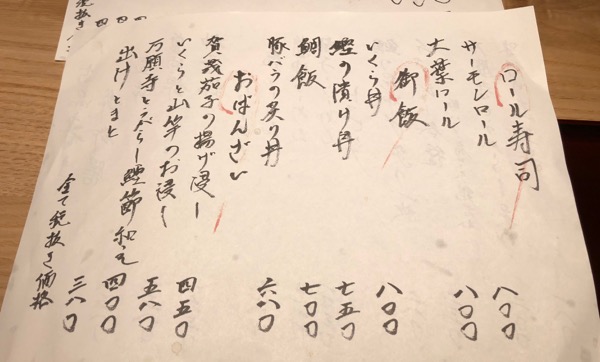 ロール寿司
サーモンロール 八〇〇
大葉ロール 八〇〇
御飯
いくら丼 八〇〇
鰹の漬け丼 七五〇
鯛飯 七〇〇
豚バラの炙り丼 六八〇
おばんざい
賀茂茄子の揚げ浸し 四五〇
いくらと山芋のお浸し 五八〇
万願寺とうがらし鰹節和え 四〇〇
出汁とまと 三八〇
全て税抜き価格
税抜き